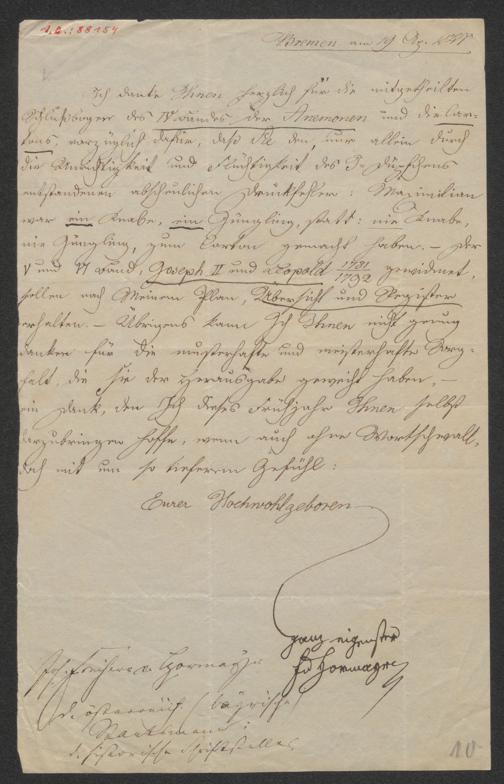 I.N.: 88154
Bremen am 19 Dz. 1847
Ich danke Ihnen herzlich für die mitgetheilten
Schlußbogen des IV Bandes der Anemonen und die Car-
tons, vorzüglich dafür, daß Sie den, nur allein durch
die Unrichtigkeit und Flüchtigkeit des
entstandenen abscheulichen Druckfehler: Maximilian
war ein Knabe, ein Jüngling, statt: nie Knabe,
nie Jüngling, zum Carton gemacht haben. – Der
V und VI Band, Joseph II und Leopold 1781/1792 gewidmet,
sollen nach Meinem Plan, Übersicht und Register
erhalten. – Übrigens kann Ich Ihnen nicht genug
danken für die musterhafte und meisterhafte Sorg-
falt, die Sie der Herausgabe geweiht haben, –
ein Dank, den Ich dieses Frühjahr Ihnen selbst
darzubringen hoffe, wenn auch ohne Wortschwall,
doch mit um so tieferem Gefühl:
Eurer Hochwohlgeboren
ganz eigenster
Hormayr
Jos. Freiherr v. Hormayr
d. österreich. (bayrischer)
Staatsmann
d. historische Schriftsteller
10